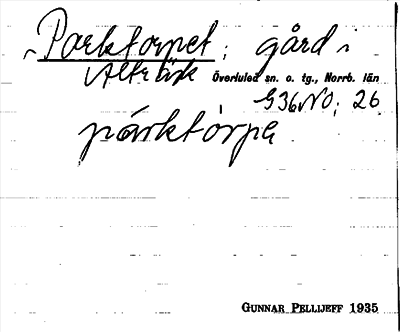 Parktorpet; gård i
Alträsk Överluleå sn. o. tg., Norrb. län
G36NO; 26
parktòrpe
GUNNAR PELLIJEFF 1935